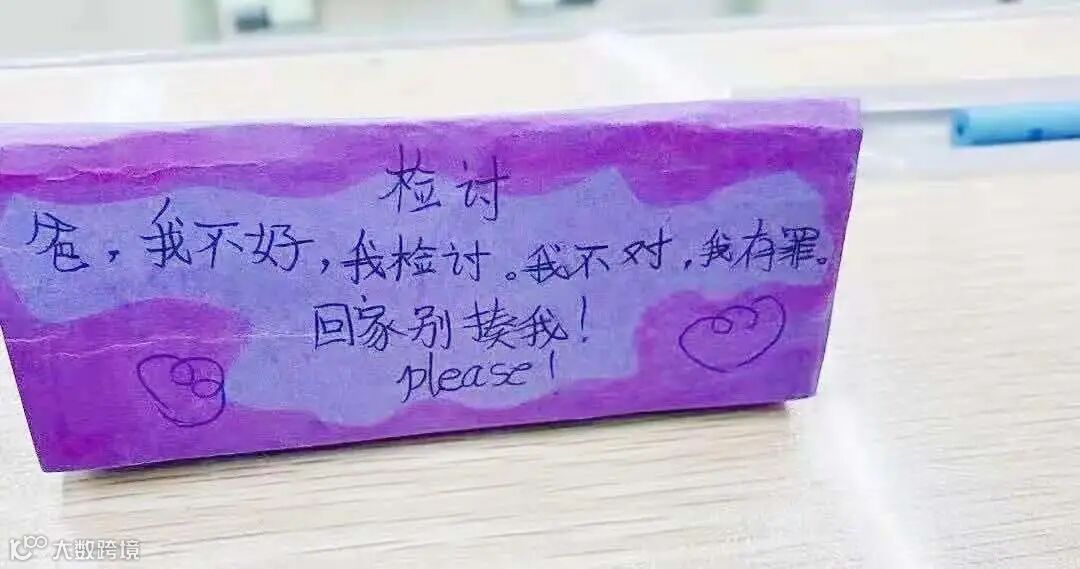 检讨
爸，我不好，我检讨。我不对，我有罪。
回家别揍我！
please!
大数跨境